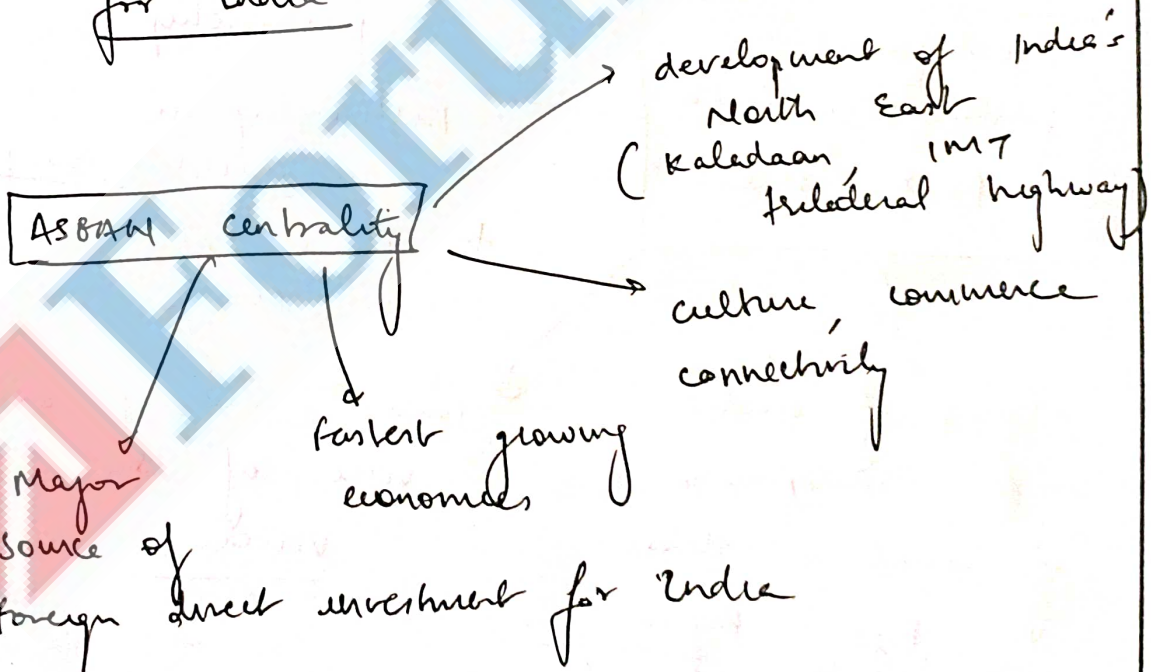 for India
development of India's
North East
(Kaladaan, IMT
trilateral highway)
ASEAN centrality
culture, commerce
connectivity
fastest growing
economies
Major
source of
foreign direct investment for India
Forum